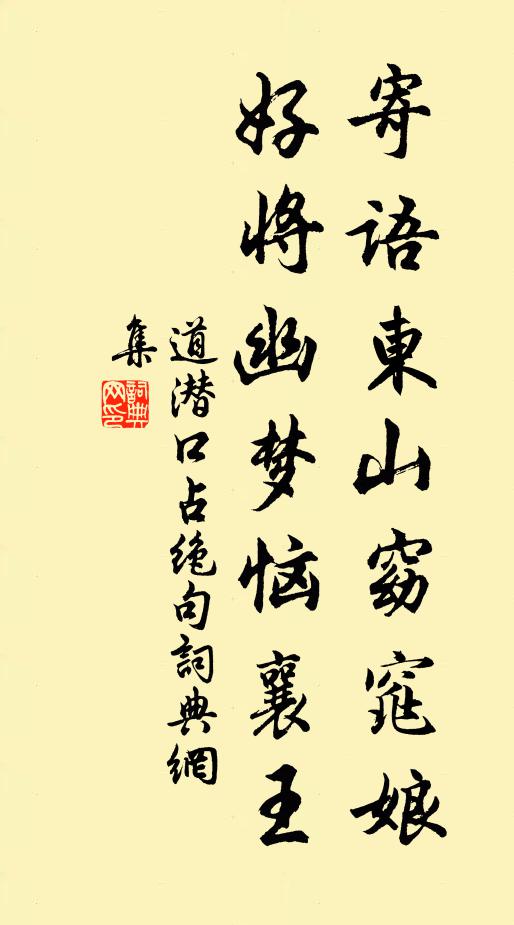 寄语東山窈窕娘
好将幽梦恼襄王
道潜口占绝句詞典網
集
詞典网印